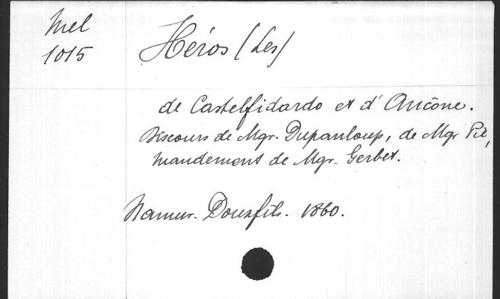 Mel
1015
Héros (Les)
de Castelfidardo et d'Ancône.
Discours de Mgr. Dupanloup, de Mgr Pie,
mandement de Mgr. Gerbet.
Namur. Douxfils. 1860.